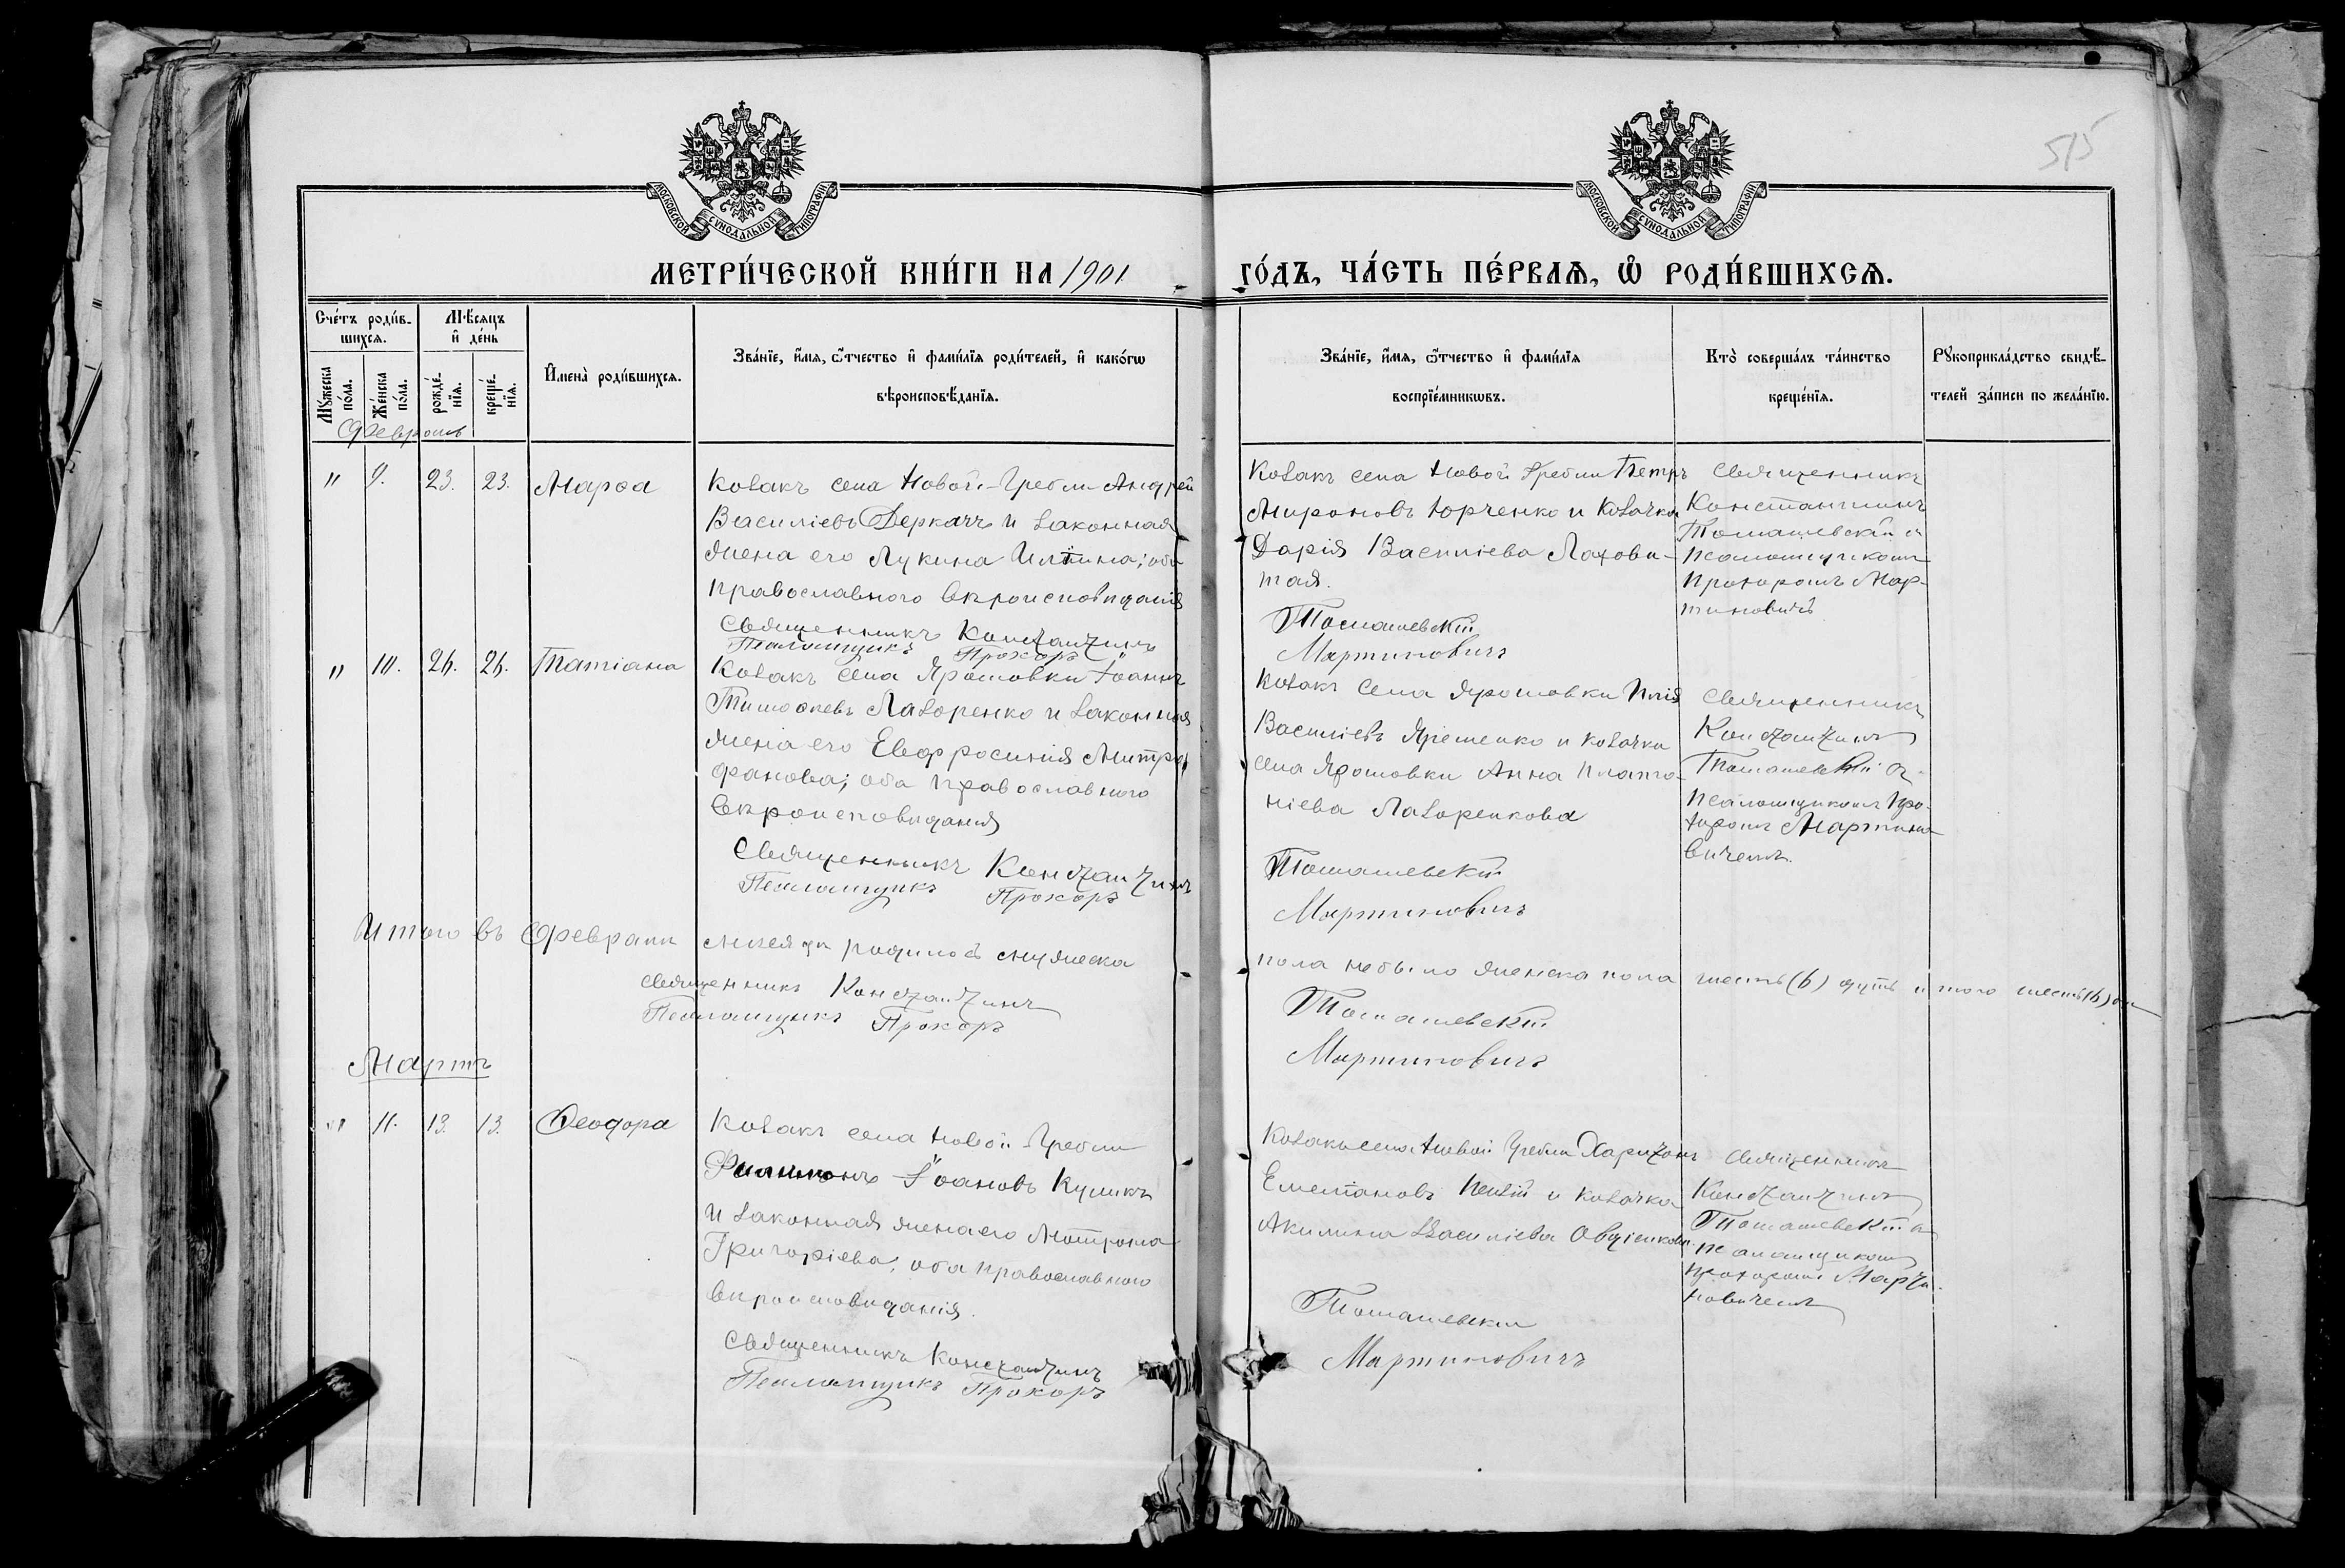 515
МОСКОВСКОЙ СѴНОДАЛЬНОЙ ТИПОГРАФІИ
МОСКОВСКОЙ СѴНОДАЛЬНОЙ ТИПОГРАФІИ
МЕТРИ́ЧЕСКОЙ КНИ́ГИ НА 1901 ГО́ДЪ, ЧА́СТЬ ПЕ́РВАѦ, Ѡ҆ РОДИ́ВШИХСѦ.
Сче́тъ роди́в-
шихсѧ.
Мꙋ́жеска
по́ла.
Же́нска
по́ла.
Мѣ́сѧцъ
и҆ де́нь
рожде́-
нїѧ.
креще́-
нїѧ.
И҆мена̀ роди́вшихсѧ.
Зва́нїе, и҆́мѧ, ѻ҆́тчество и҆ фами́лїѧ роди́телей, и҆ како́гѡ
вѣроисповѣ́данїѧ.
Зва́нїе, и҆́мѧ, ѻ҆́тчество и҆ фами́лїѧ
воспрїе́мникѡвъ.
Кто̀ соверша́лъ та́инство
креще́нїѧ.
Рꙋкоприкла́дство свидѣ́-
телей за́писи по жела́нїю.
Февраль
" 9. 23. 23. Марѳа
Козакъ села Новой-Гребли Андрей
Василіевъ Деркачъ и законная
жена его Лукина; оба
православного вѣроисповѣданія
Священникъ Константинъ
Псаломщикъ Прохоръ
Козакъ села Новой Гребли Петръ
Мироновъ Юрченко и Козачка
Дарія Василіева Лахови-
тая.
Томашевскій
Мартиновичъ
Священникъ
Константинъ
Томашевскій съ
псаломщикомъ
Прохоромъ Мар-
тиновичъ
" 10. 26. 26. Татіана
Козакъ села Ярошовки Іоаннъ
Тимоѳеевъ Лазоренко и законная
жена его Евфросинія Митро-
фанова; оба православного
вѣроисповѣданія
Священникъ Константинъ
Псаломщикъ Прохоръ
Козакъ села Ярошовки Илія
Василіевъ Яременко и козачка
села Ярошовки Анна Плато-
ніева Лазоренкова
Томашевскій
Мартиновичъ
Священникъ
Константинъ
Томашевскій съ
псаломщикомъ Про-
хоромъ Мартино-
вичемъ.
Итого въ Февралѣ мѣсяцѣ родилось мужеска пола небыло женска пола шесть (6) душъ итого шесть (6)
Священникъ Константинъ Томашевскій
Псаломщикъ Прохоръ Мартиновичъ
Мартъ
" 11. 13. 13. Ѳеодора
Козакъ села Новой-Гребли
Филимонъ Іоановъ Куликъ
и законная жена его Мотрона
Григоріева; оба православного
вѣроисповѣданія.
Священникъ Константинъ
Псаломщикъ Прохоръ
Козакъ села Новой Гребли Харитонъ
Емеліановъ и козачка
Акилина Василіева Овдіенкова.
Томашевскій
Мартиновичъ
Священникъ
Константинъ
Томашевскій съ
псаломщикомъ
Прохоромъ Марти-
новичемъ